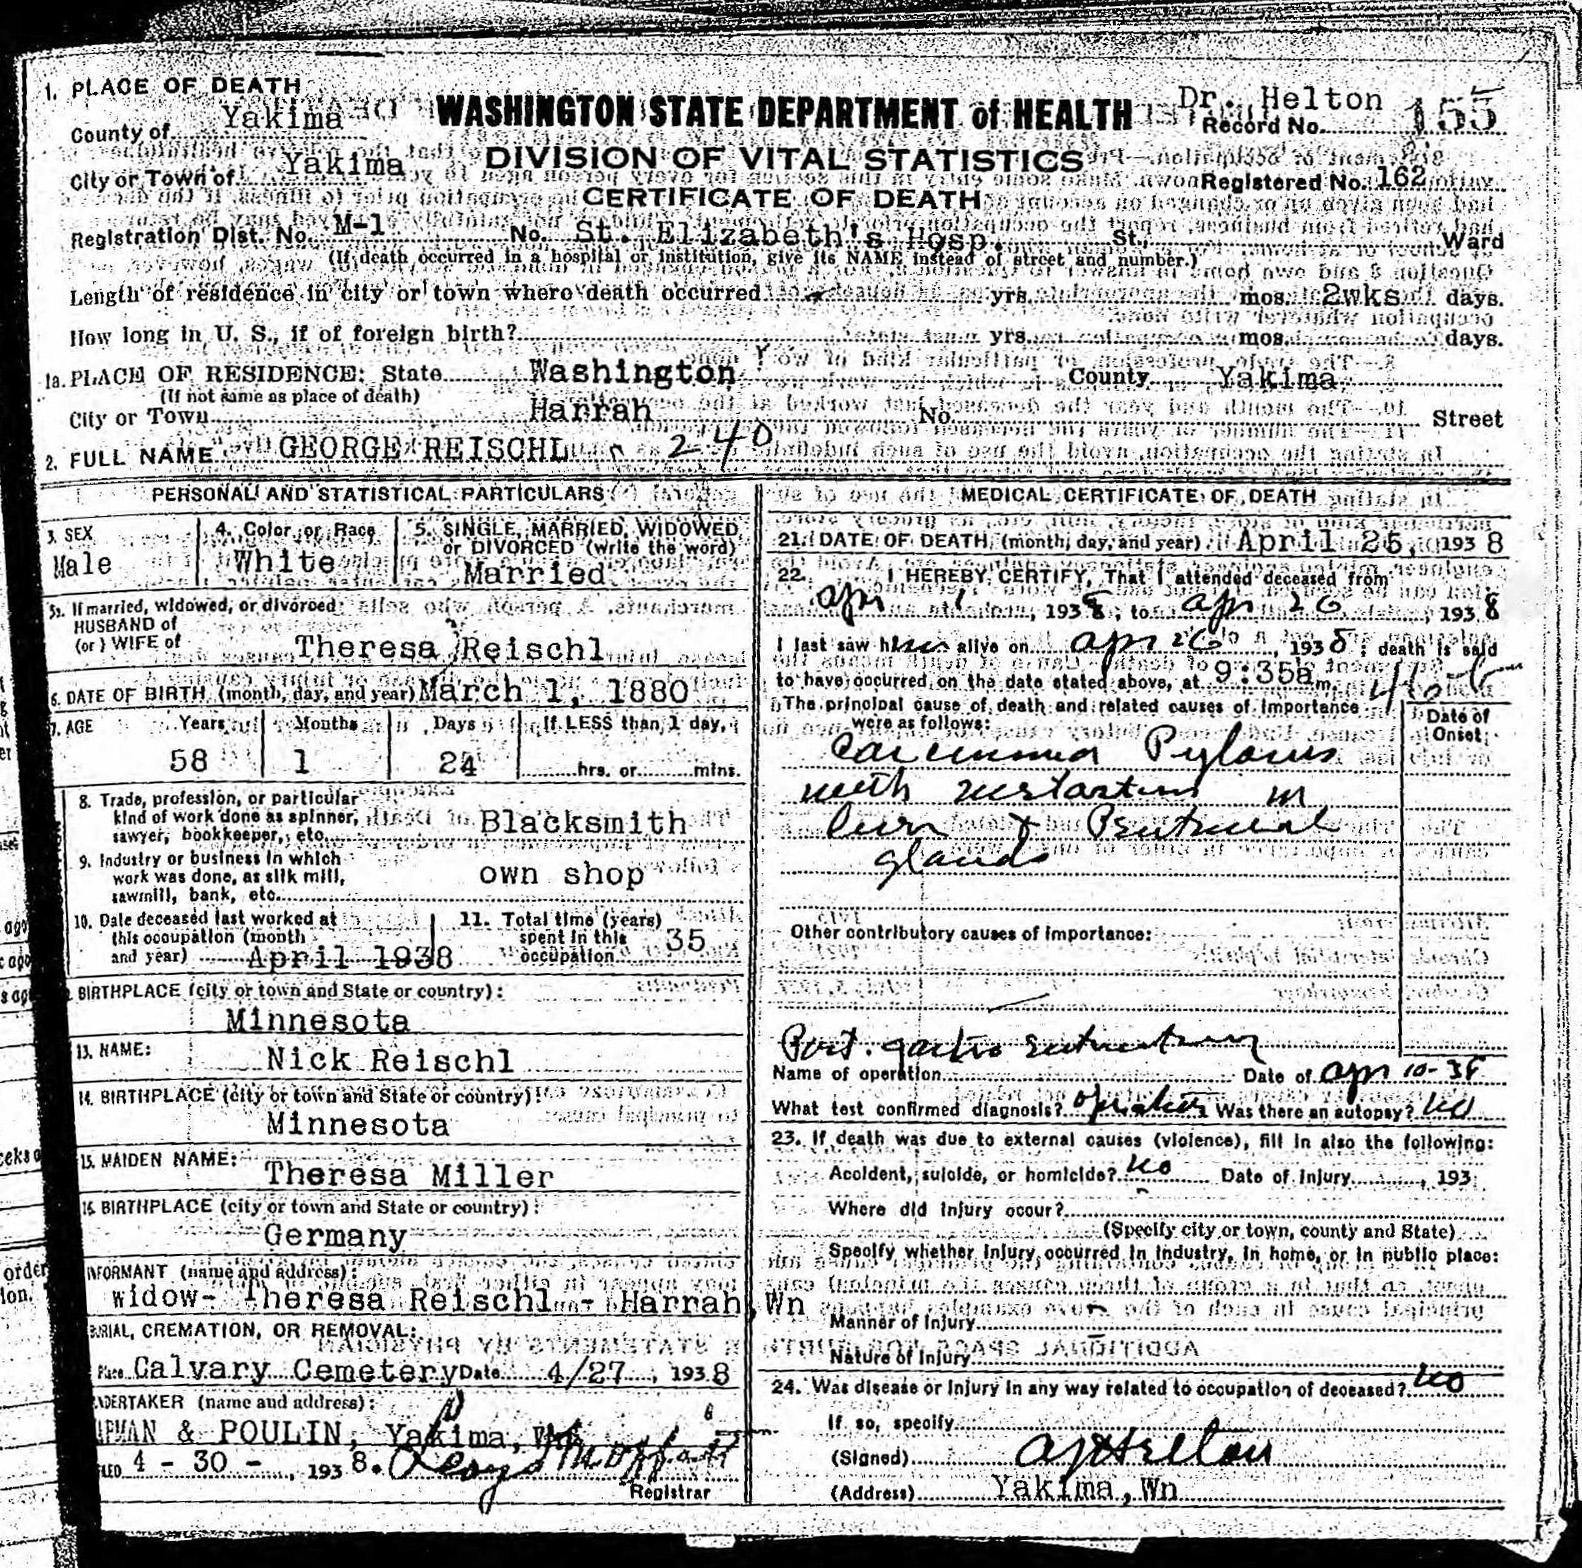 1. PLACE OF DEATH
Dr. Helton
County of Yakima
WASHINGTON STATE DEPARTMENT of HEALTH
Record No. 155
City or Town of Yakima
DIVISION OF VITAL STATISTICS
Registered No. 162
CERTIFICATE OF DEATH
Registration Dist. No. M-1 No. St. Elizabeth's Hosp. St., Ward
(If death occurred in a hospital or institution, give its NAME instead of street and number.)
Length of residence in city or town where death occurred yrs. mos. 2wks days.
How long in U. S., if of foreign birth? yrs. mos. days.
1a. PLACE OF RESIDENCE: State Washington County Yakima
(If not same as place of death)
City or Town Harrah No. Street
2. FULL NAME GEORGE REISCHL 240
PERSONAL AND STATISTICAL PARTICULARS
3. SEX
4. Color or Race
5. SINGLE, MARRIED, WIDOWED,
or DIVORCED (write the word)
Male
White
Married
If married, widowed, or divorced
HUSBAND of
(or) WIFE of Theresa Reischl
6. DATE OF BIRTH (month, day, and year) March 1, 1880
7. AGE Years Months Days If LESS than 1 day,
58 1 24 hrs. or mins.
8. Trade, profession, or particular
kind of work done as spinner,
sawyer, bookkeeper, etc. Blacksmith
9. Industry or business in which
work was done, as silk mill,
sawmill, bank, etc. own shop
10. Date deceased last worked at
this occupation (month
and year) April 1938
11. Total time (years)
spent in this
occupation 35
BIRTHPLACE (city or town and State or country):
Minnesota
13. NAME:
Nick Reischl
14. BIRTHPLACE (city or town and State or country):
Minnesota
15. MAIDEN NAME:
Theresa Miller
16. BIRTHPLACE (city or town and State or country):
Germany
INFORMANT (name and address):
widow- Theresa Reischl - Harrah, Wn
BURIAL, CREMATION, OR REMOVAL:
Place Calvary Cemetery Date 4/27, 1938
UNDERTAKER (name and address):
& POULIN, Yakima, Wn
FILED 4 - 30 -, 1938.
Registrar
MEDICAL CERTIFICATE OF DEATH
21. DATE OF DEATH (month, day, and year) April 25, 1938
22. I HEREBY CERTIFY, That I attended deceased from
Apr 1, 1938, to Apr 26, 1938
I last saw him alive on Apr 26, 1938; death is said
to have occurred on the date stated above, at 9:35a m.
The principal cause of death and related causes of importance
were as follows:
Date of
Onset
Carcinoma Pylorus
with metastasis in
liver &
glands
Other contributory causes of importance:
Post. gastro enterostomy
Name of operation Date of Apr 10-38
What test confirmed diagnosis? operation Was there an autopsy? no
23. If death was due to external causes (violence), fill in also the following:
Accident, suicide, or homicide? no Date of injury , 193
Where did injury occur?
(Specify city or town, county and State)
Specify whether injury occurred in industry, in home, or in public place:
Manner of injury
Nature of injury
24. Was disease or injury in any way related to occupation of deceased? no
If so, specify
(Signed) Helton
(Address) Yakima, Wn